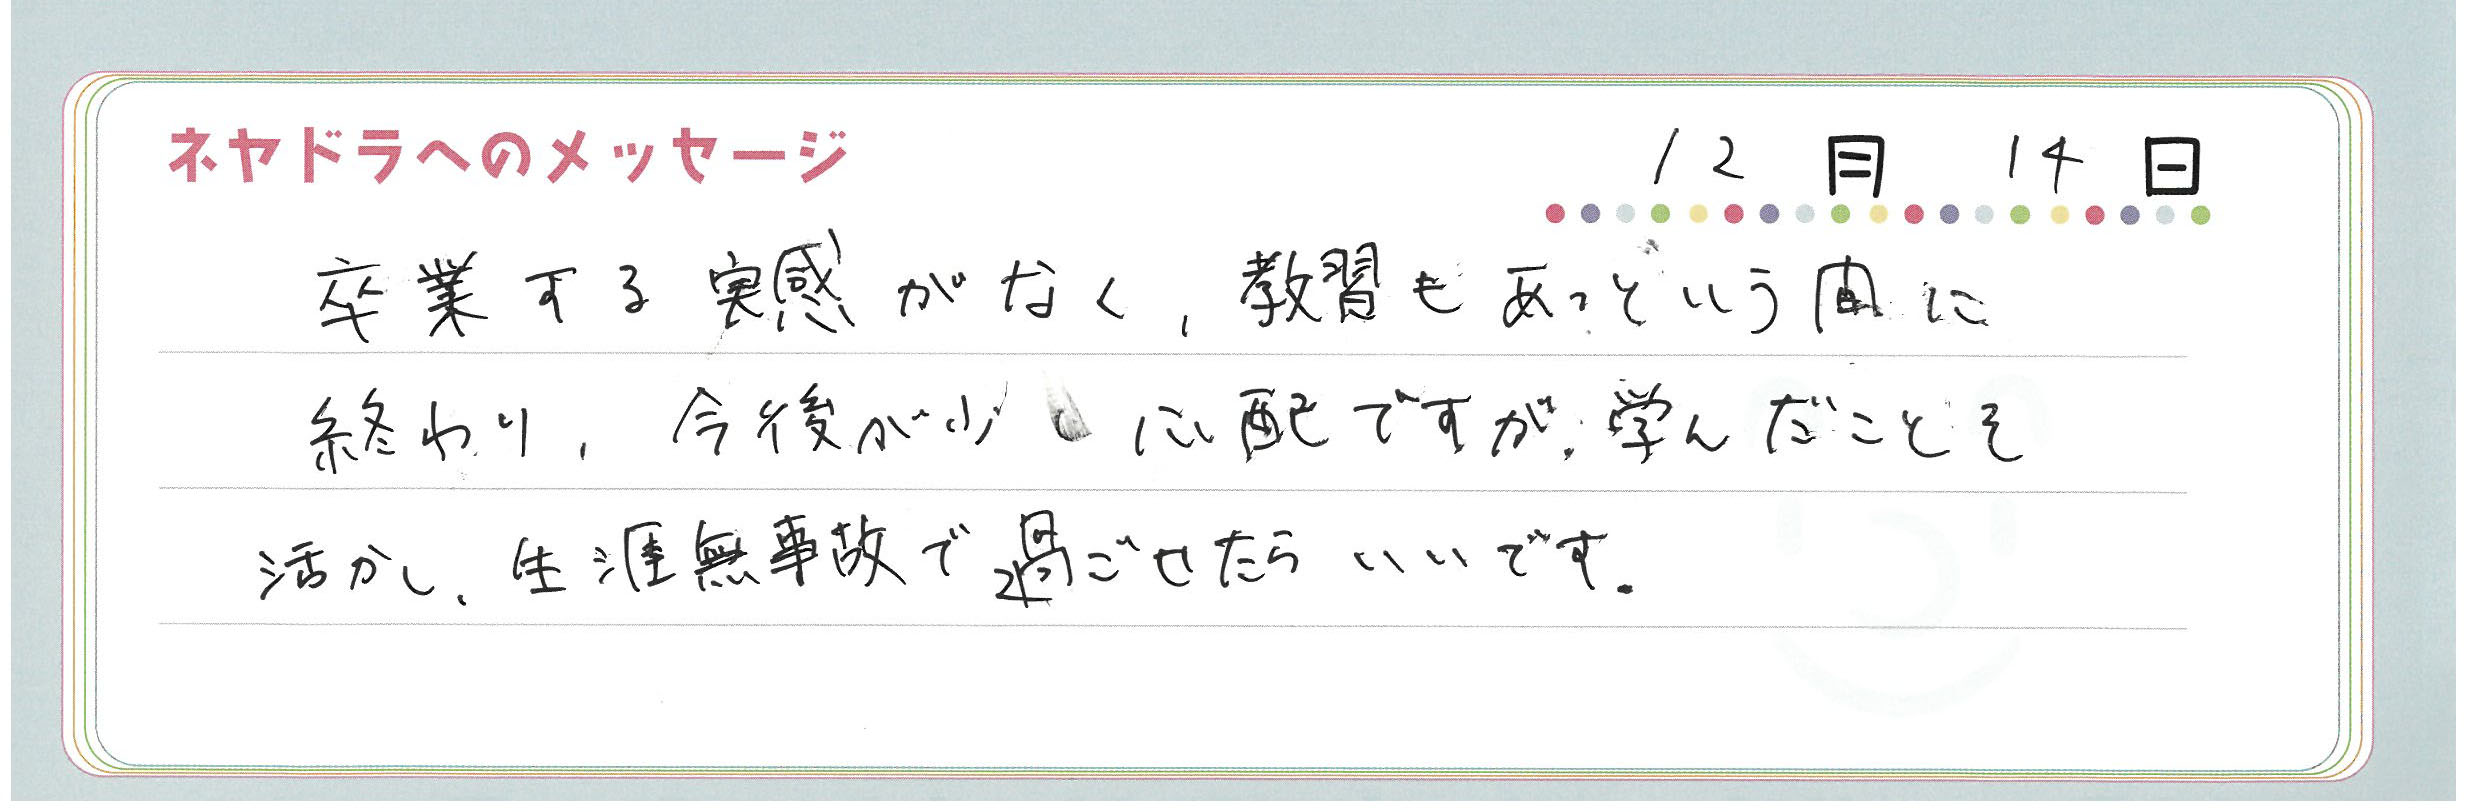 ネヤドラへのメッセージ
12月 14日
卒業する実感がなく、教習もあっという間に
終わり、今後が少し心配ですが、学んだことを
活かし、生涯無事故で過ごせたらいいです。